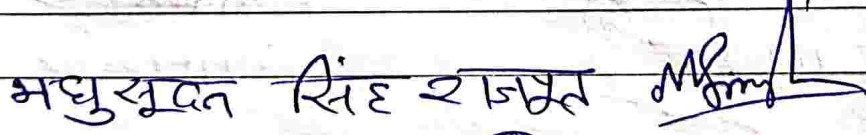 मधुसूदन सिंह राजपूत